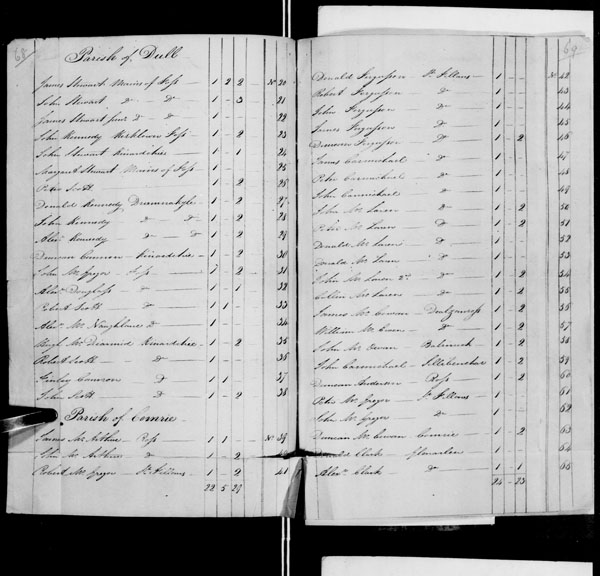 68
Parish of Dull
James Stewart Mains of Foss - 1 2 2 No 20
John Stewart do - do - 1 - 3 21
James Stewart junr do - do - 1 - - 22
John Kennedy Foss - 1 - 2 23
John Stewart Kinardchie - 1 - 1 24
Margaret Stewart Mains of Foss - 1 - - 25
Peter Scott 1 - 2 26
Donald Kennedy 1 - 2 27
John Kennedy - do - do - 1 - 2 28
Alexr Kennedy - do - do 1 - 2 29
Duncan Cameron - Kinardchie - 1 - 2 30
John McGregor - Foss - 1 - 2 31
Alexr Douglass - do - 1 - 1 32
Robert Scott do 1 1 - 33
Alexr McNaughtane do 1 - - 34
Hugh McDiarmid Kinardchie - 1 - 2 35
Robert Scott - do - 1 - - 36
Finlay Cameron - do - 1 1 37
John Scott - do - 1 - 2 38
Parish of Comrie
James McArthur - Ross 1 1 - No 39
John McArthur - do - 1 - 2 40
Robert McGregor St Fillans - 1 - 2 41
22 5 27
69
Donald Fergusson - St Fillans - 1 - - No 42
Robert Fergusson - do - 1 - - 43
John Fergusson - do - 1 - - 44
James Fergusson - do - 1 - - 45
Duncan Fergusson - do - 1 - 2 46
James Carmichael - do - 1 - - 47
Peter Carmichael - do - 1 - - 48
John Carmichael - do - 1 - - 49
John McLaren - do - 1 - 2 50
Peter McLaren - do - 1 - 2 51
Donald McLaren - do - 1 - - 52
Donald McLaren - do - 1 - - 53
John McLaren 2d - do - 1 - 2 54
McLaren - do - 1 - 2 55
James McCowan - Dalginross 1 - 2 56
William McEwen - do - 1 - 2 57
John McEwan 1 - 2 58
John Carmichael - 1 - 2 59
Duncan Anderson - Ross - 1 - 2 60
Peter McGregor - St Fillans - 1 - - 61
John McGregor - do - 1 - - 62
Duncan McCowan Comrie - 1 - 2 63
Donald Clark - Glenarten 1 - - 64
Alexr Clark - do - 1 - 1 65
24 - 23